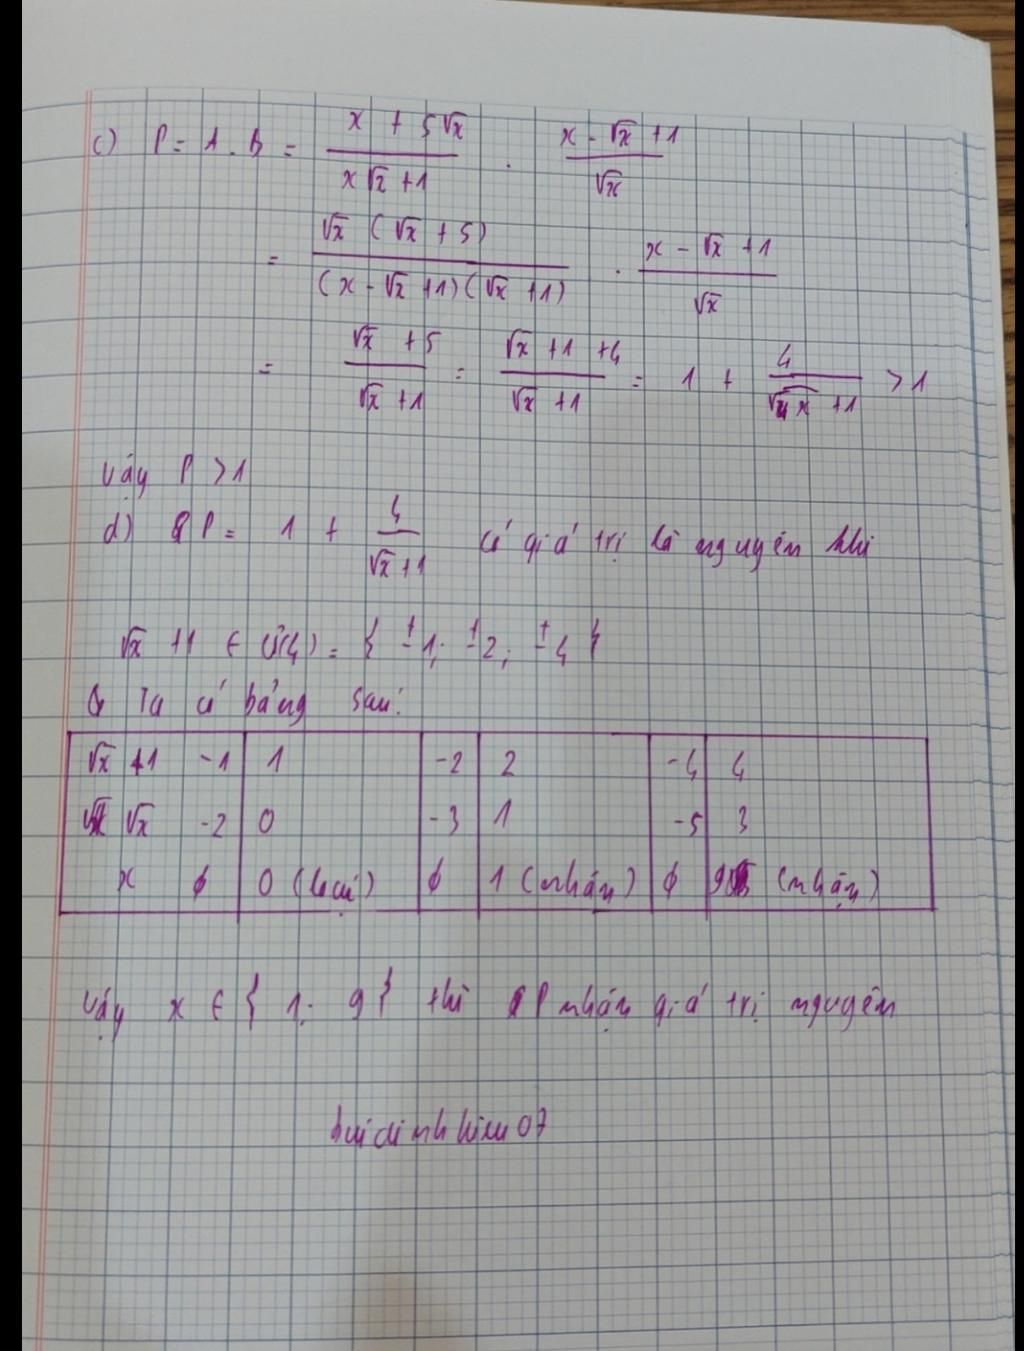 c) P = A . B = (x + 5√x)/(x√x + 1) . (x - √x + 1)/√x
= (√x (√x + 5))/((x - √x + 1)(√x + 1)) . (x - √x + 1)/√x
= (√x + 5)/(√x + 1) = (√x + 1 + 4)/(√x + 1) = 1 + 4/(√x + 1) > 1
Vậy P > 1
d) P = 1 + 4/(√x + 1) có giá trị là nguyên khi
√x + 1 ∈ Ư(4) = { ±1; ±2; ±4 }
Ta có bảng sau:
√x + 1 -1 1 -2 2 -4 4
√x -2 0 -3 1 -5 3
x ∅ 0 (loại) ∅ 1 (nhận) ∅ 9 (nhận)
Vậy x ∈ { 1; 9 } thì P nhận giá trị nguyên
buidinhhieu07